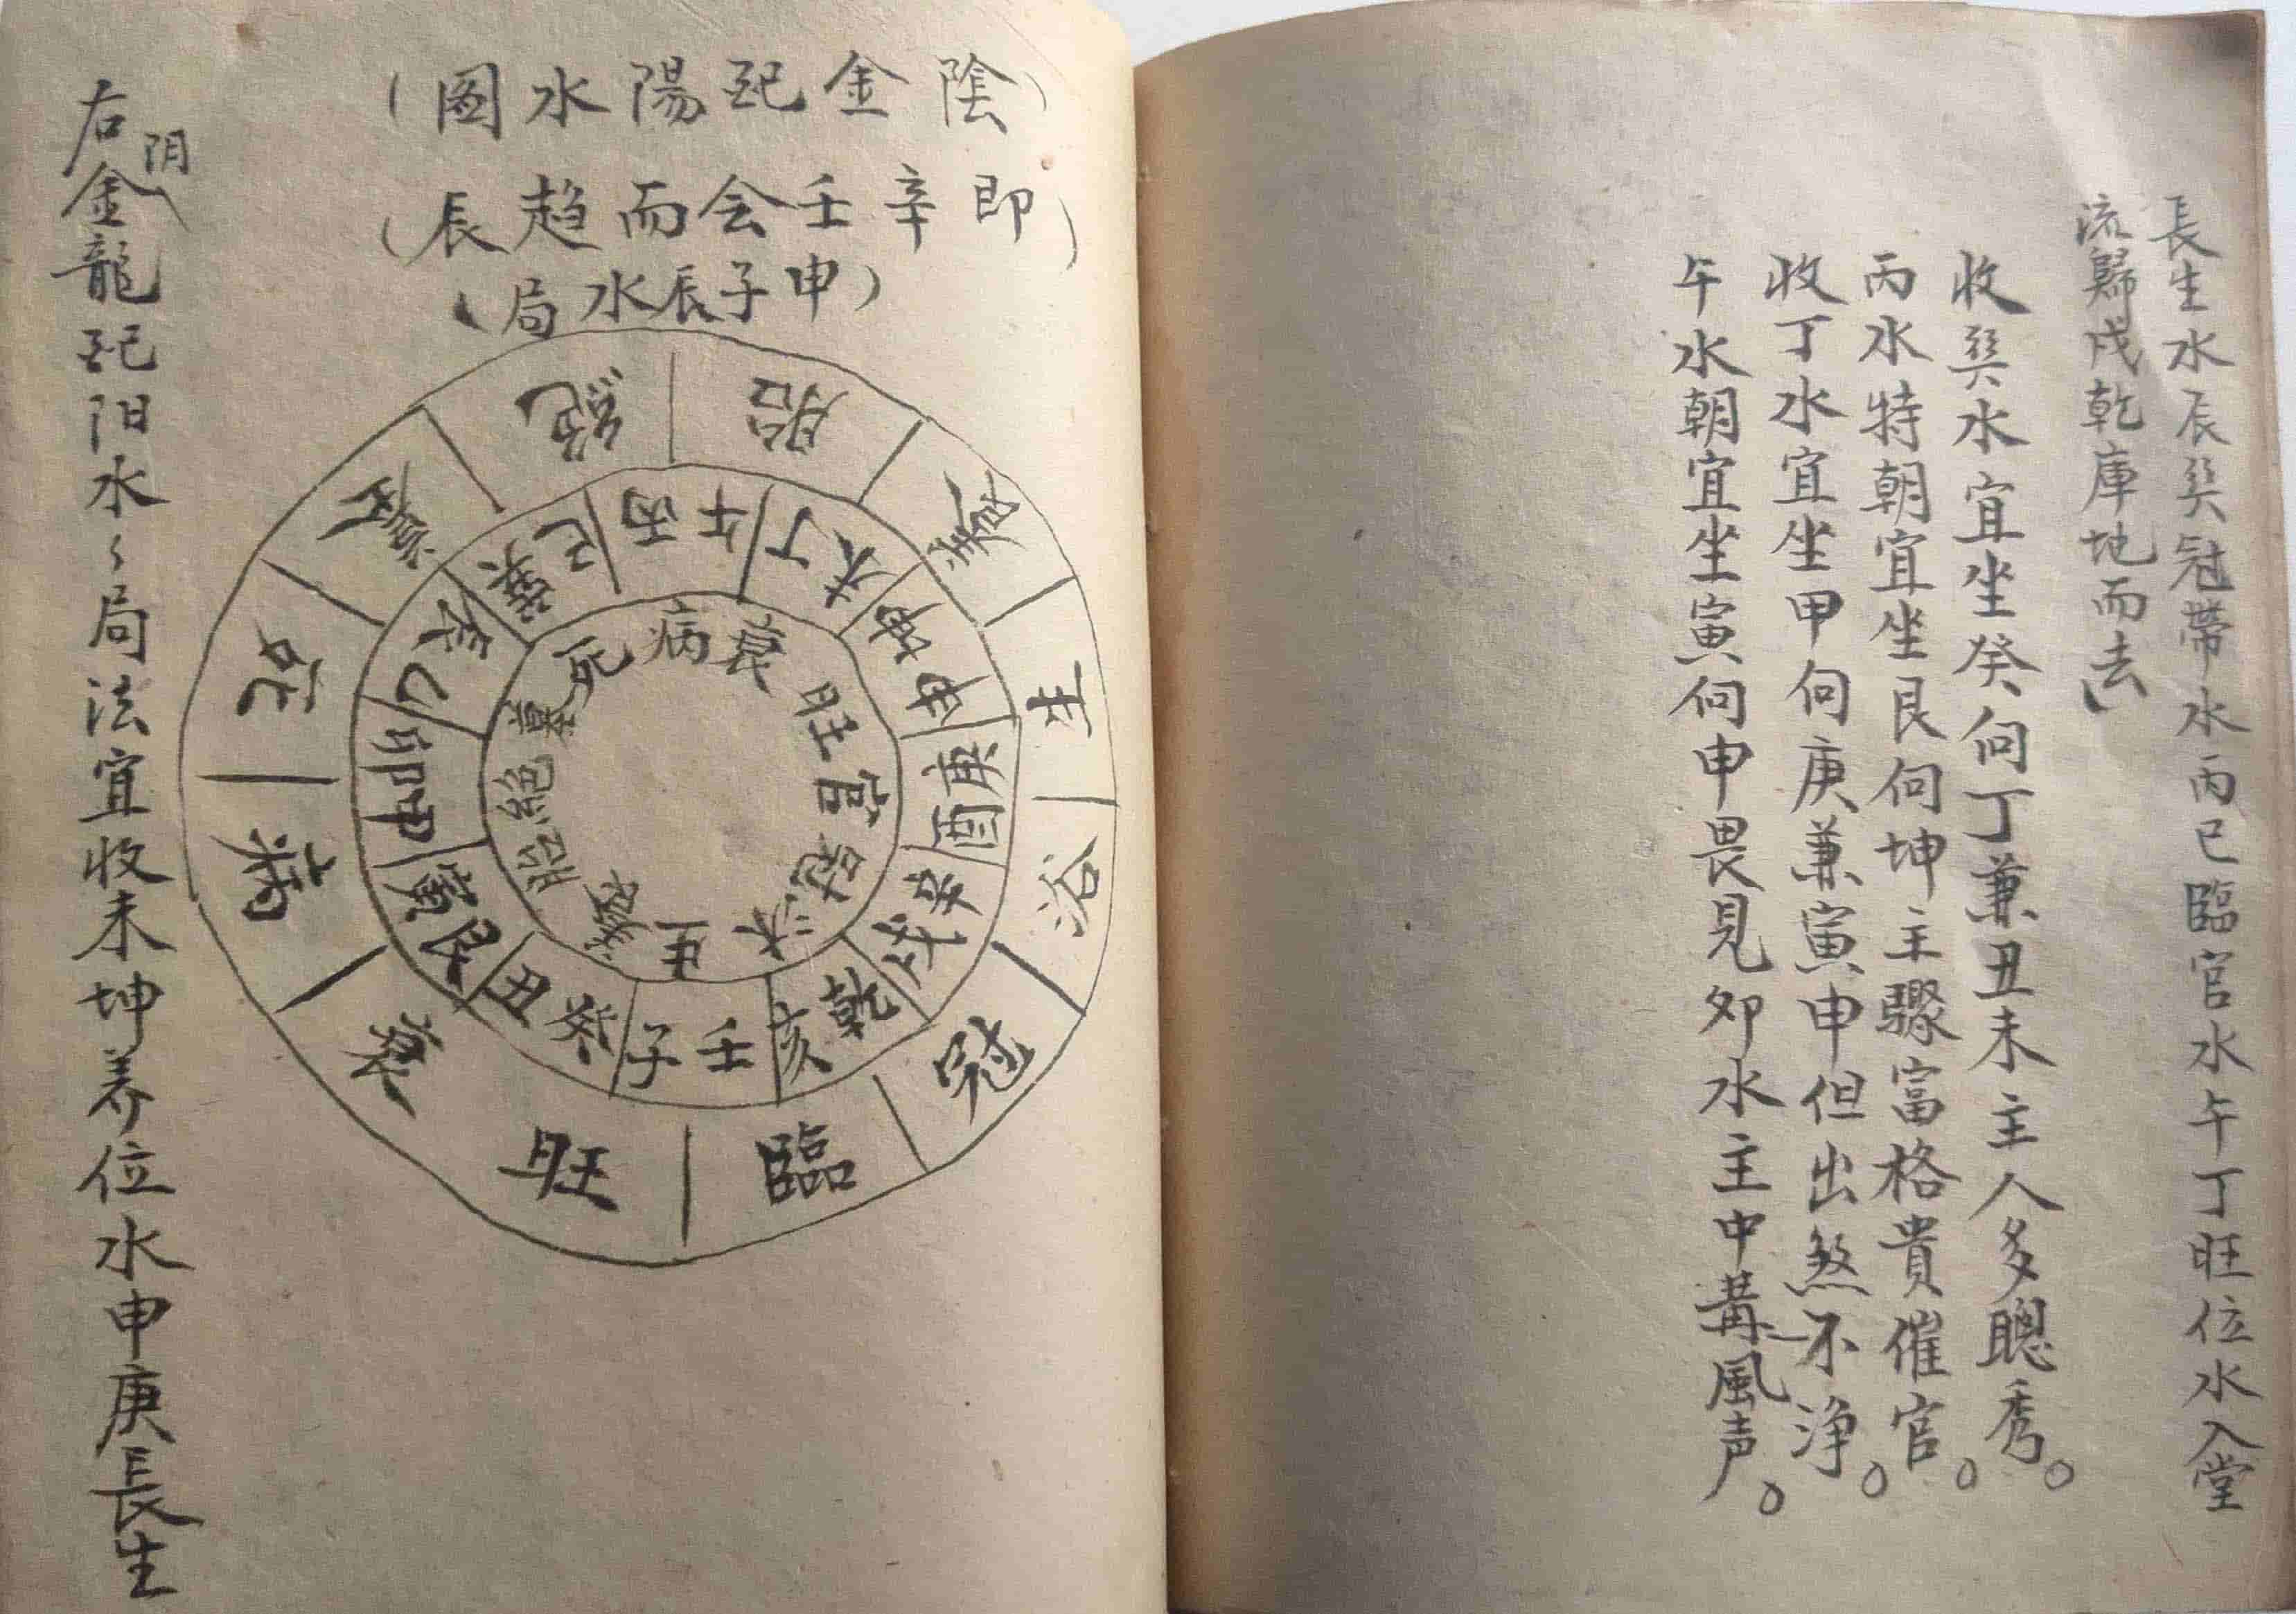 長生水辰巽冠帶水丙巳臨官水午丁旺位水入堂
流歸戌乾庫地而去
收巽水宜坐癸向丁兼丑未主人多聰秀。
丙水特朝宜坐艮向坤主驟富格貴催官。
收丁水宜坐甲向庚兼寅申但出煞不净。
午水朝宜坐寅向申畏見卯水主中冓風声。
(陰金配陽水图)
(即辛壬会而趋辰)
(申子辰水局)
胎
養
生
浴
冠
臨
旺
衰
病
死
墓
絕
丙午
丁未
坤申
庚酉
辛戌
乾亥
壬子
癸丑
艮寅
甲卯
乙辰
巽巳
病
衰
旺
官
冠
沐
生
養
胎
絕
墓
死
右阴金龍配阳水〻局法宜收未坤养位水申庚長生